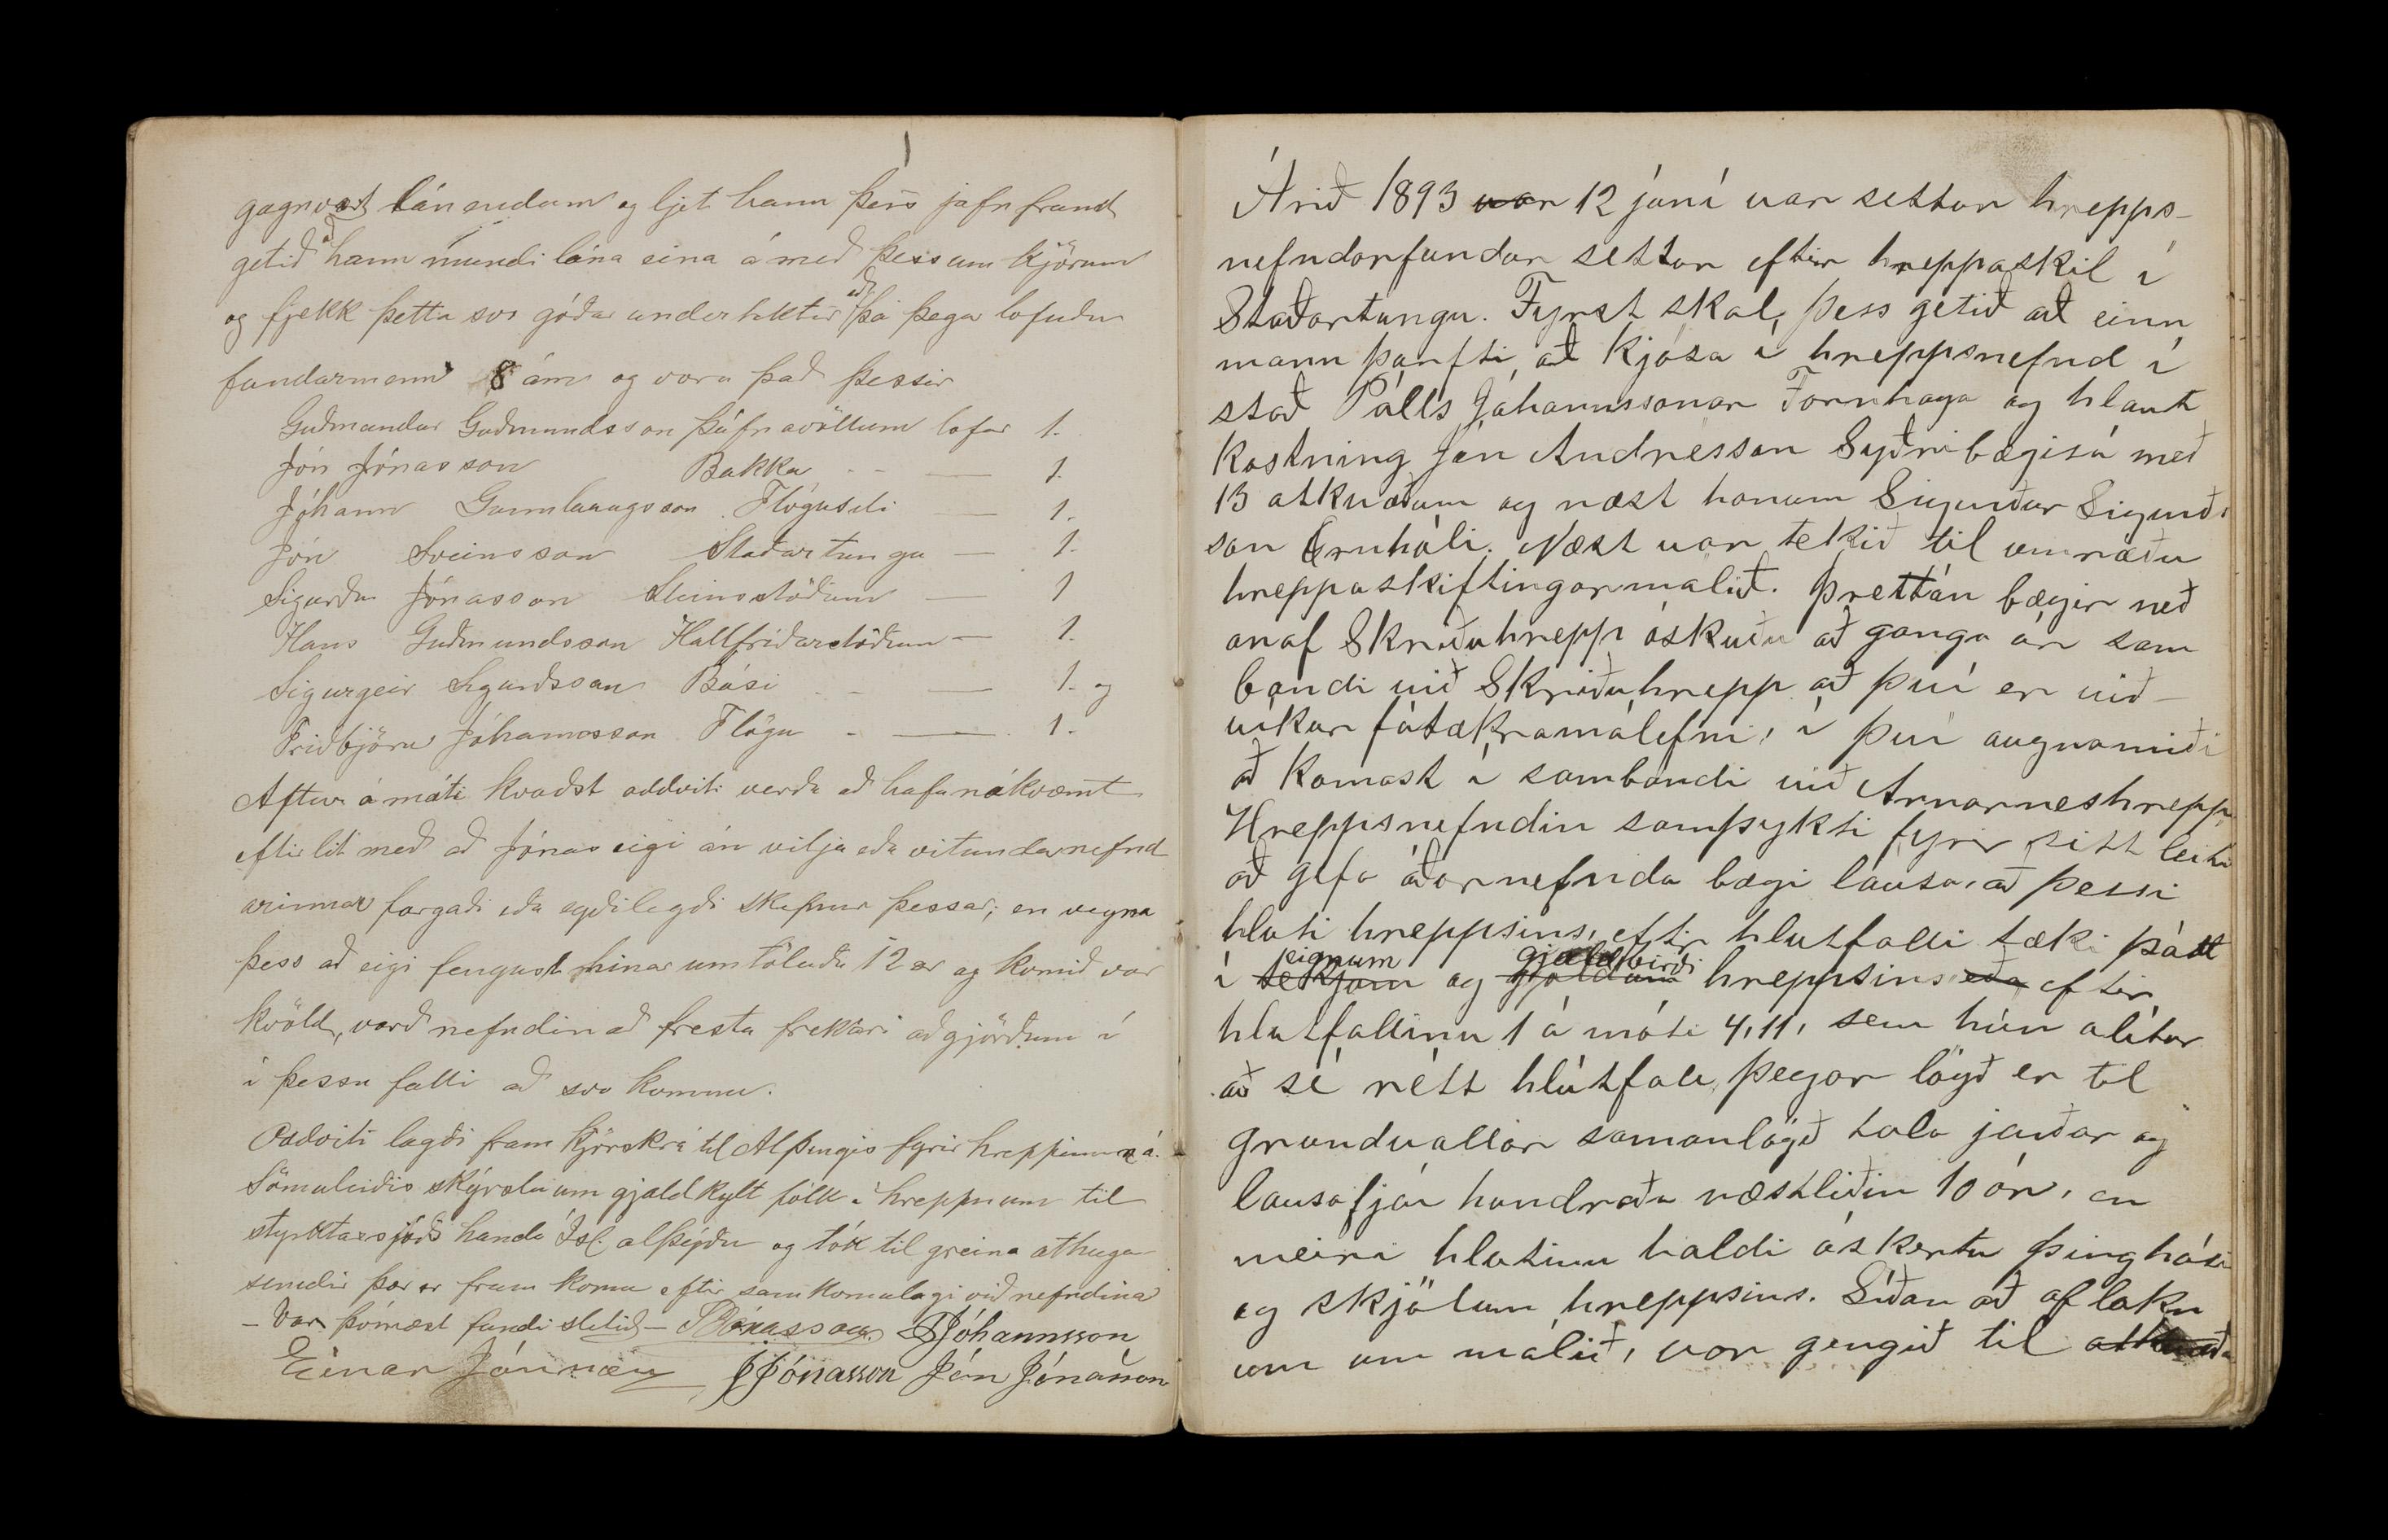 gagnvart lánendum og ljet hann þess jafnframt
getið að hann mundi lána eina á með þessum kjörum
og fjekk þetta svo góðar undirtektir að þá þegar lofuðu
fundarmenn 8 ám og voru það þessir
Guðmundur Guðmundsson Þúfnavöllum lofar 1.
Jón Jónasson Bakka - - — 1.
Jóhann Gunnlaugsson Flöguseli — 1.
Jón Sveinsson Staðartungu — 1.
Sigurður Jónasson Steinsstöðum — 1
Hans Guðmundsson Hallfríðarstöðum — 1.
Sigurgeir Sigurðsson Bási - - — 1. og
Friðbjörn Jóhannsson Flögu - — 1.
Aftur á máti kvaðst oddviti verða að hafa nákvæmt
eftirlit með að Jónas eigi án vilja eða vitundar nefnd
arinnar fargaði eða eyðilegði skepnur þessar; en vegna
þess að eigi fengust hinar umtöluðu 12 ær og komið var
kvöld, varð nefndin að fresta frekari aðgjörðum í
í þessu falli að svo komnu.
Oddviti lagði fram kjörskrá til Alþingis fyrir hreppinn á.
Sömuleiðis skýrslu um gjaldkylt fólk í hreppnum til
styrktarsjóðs handa Ísl. alþýðu og tók til greina athuga-
semdir þær er fram komu eftir samkomulagi við nefndina
- Var þvínæst fundi slitið - Jónasson Jóhannsson
Einar JJónasson Jón Jónasson
Árið 1893 var 12 júní var settur hrepps-
nefndarfundur settur eftir hreppaskil í
Staðartungu. Fyrst skal, þess getið að einn
mann þurfti, að kjósa í hreppsnefnd í
stað Pálls Jóhannssonar Fornhaga og hlaut
kostning Jón Andrésson Syðribægisá með
13 atkvæðum og næst honum Sigurður Sigurðs
son Grnhóli. Næst var tekið til umræðu
hreppaskiftingarmálið. Þrettán bæjir neð
anaf Skriðuhrepp óskuðu að ganga úr sam
bandi við Skriðuhrepp að því er við-
víkur fátækramálefni, í því augnamiði
að komast í sambandi við Arnarneshrepp.
Hreppsnefndin samþykti fyrir sitt leiti
að gefa áðurnefnda bægi lausa, að þessi
hluti hreppsins, eftir hlutfalli tæki þátt
eignum gjaldbirði
í tekjum og gjöldum hreppsins eða eftir
hlutfallinu 1 á móti 4,11, sem hún alítur
að sé rétt hlutfall, þegar lögð er til
grundvallar samanlögð tala jarðar og
lausafjár hundraða næstliðin 10 ár, en
meiri hlutinn haldi óskertu þinghúsi
og skjölum hreppsins. Síðan að aflokn
um um málið, var gengið til